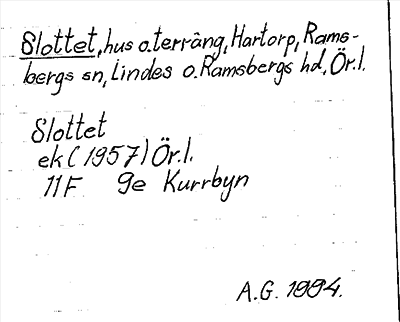 Slottet, hus o. terräng, Hartorp, Rams-
bergs sn, Lindes o. Ramsbergs hd, Ör.l.
Slottet
ek (1957) Ör.l.
11F 9e Kurrbyn
A.G. 1994.